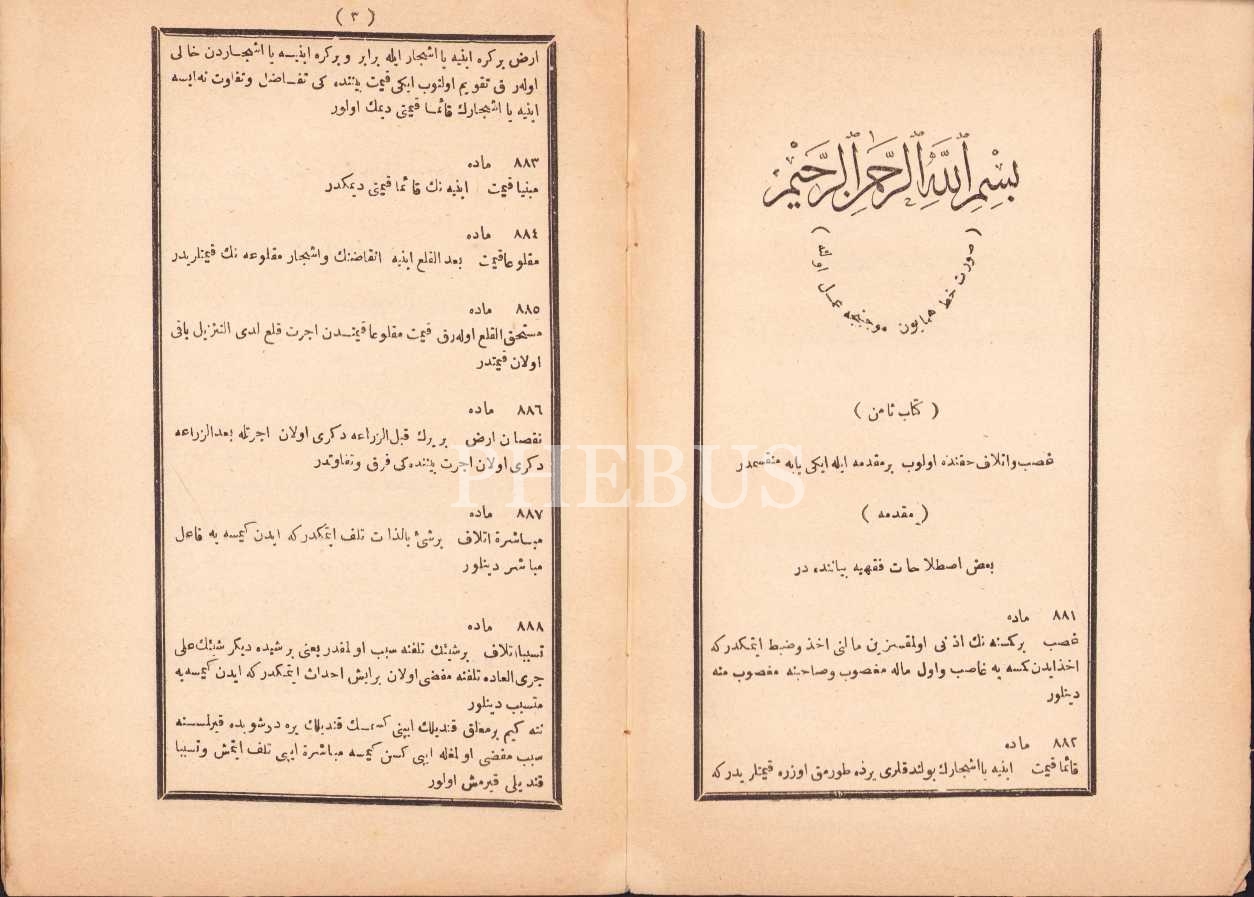 بِسْمِ اللّٰهِ الرَّحْمٰنِ الرَّحِيْمِ
( صورت خط همايون )
( موجبنجه عمل اولنه )
( كتاب ثامن )
غصب و اتلاف حقنده اولوب برمقدمه ايله ايكى بابه منقسمدر
( مقدمه )
بعض اصطلاحات فقهيه بياننده در
٨٨١ ماده
غصب بركمسنه نك اذنى اولقسزين مالنى اخذ وضبط ايتمكدركه
اخذايدن كمسه يه غاصب واول ماله مغصوب وصاحبنه مغصوب منه
دينلور
٨٨٢ ماده
قائما قيمت ابنيه يا اشجارك بولندقلرى يرده طورمق اوزره قيمتلريدركه
( ٣ )
ارض بركره ابنيه يا اشجار ايله برابر و بركره ابنيه يا اشجاردن خالى
اوله رق تقويم اولنوب ايكى قيمت بيننده كى تفاضل وتفاوت نه ايسه
ابنيه يا اشجارك قائما قيمتى ديمك اولور
٨٨٣ ماده
مبنيا قيمت ابنيه نك قائما قيمتى ديمكدر
٨٨٤ ماده
مقلوعا قيمت بعد القلع ابنيه انقاضنك و اشجار مقلوعه نك قيمتلريدر
٨٨٥ ماده
مستحق القلع اوله رق قيمت مقلوعا قيمتدن اجرت قلع لدى التنزيل باقى
اولان قيمتدر
٨٨٦ ماده
نقصان ارض بر يرك قبل الزراعه دكرى اولان اجرتله بعدالزراعه
دكرى اولان اجرت بيننده كى فرق وتفاوتدر
٨٨٧ ماده
مباشرة اتلاف برشئ بالذات تلف ايتمكدركه ايدن كيمسه يه فاعل
مباشر دينلور
٨٨٨ ماده
تسببا اتلاف برشيئك تلفنه سبب اولمقدر يعنى برشيده ديكر شيئك على
جرى العاده تلفنه مفضى اولان برايش احداث ايتمكدركه ايدن كيمسه يه
متسبب دينلور
نته كيم برمعلق قنديلك ايپنى كسمك قنديلك يره دوشوبده قيرلمسنه
سبب مفضى اولمغله ايپى كسن كيمسه مباشرة ايپى تلف ايتمش وتسببا
قنديلى قيرمش اولور
PHEBUS